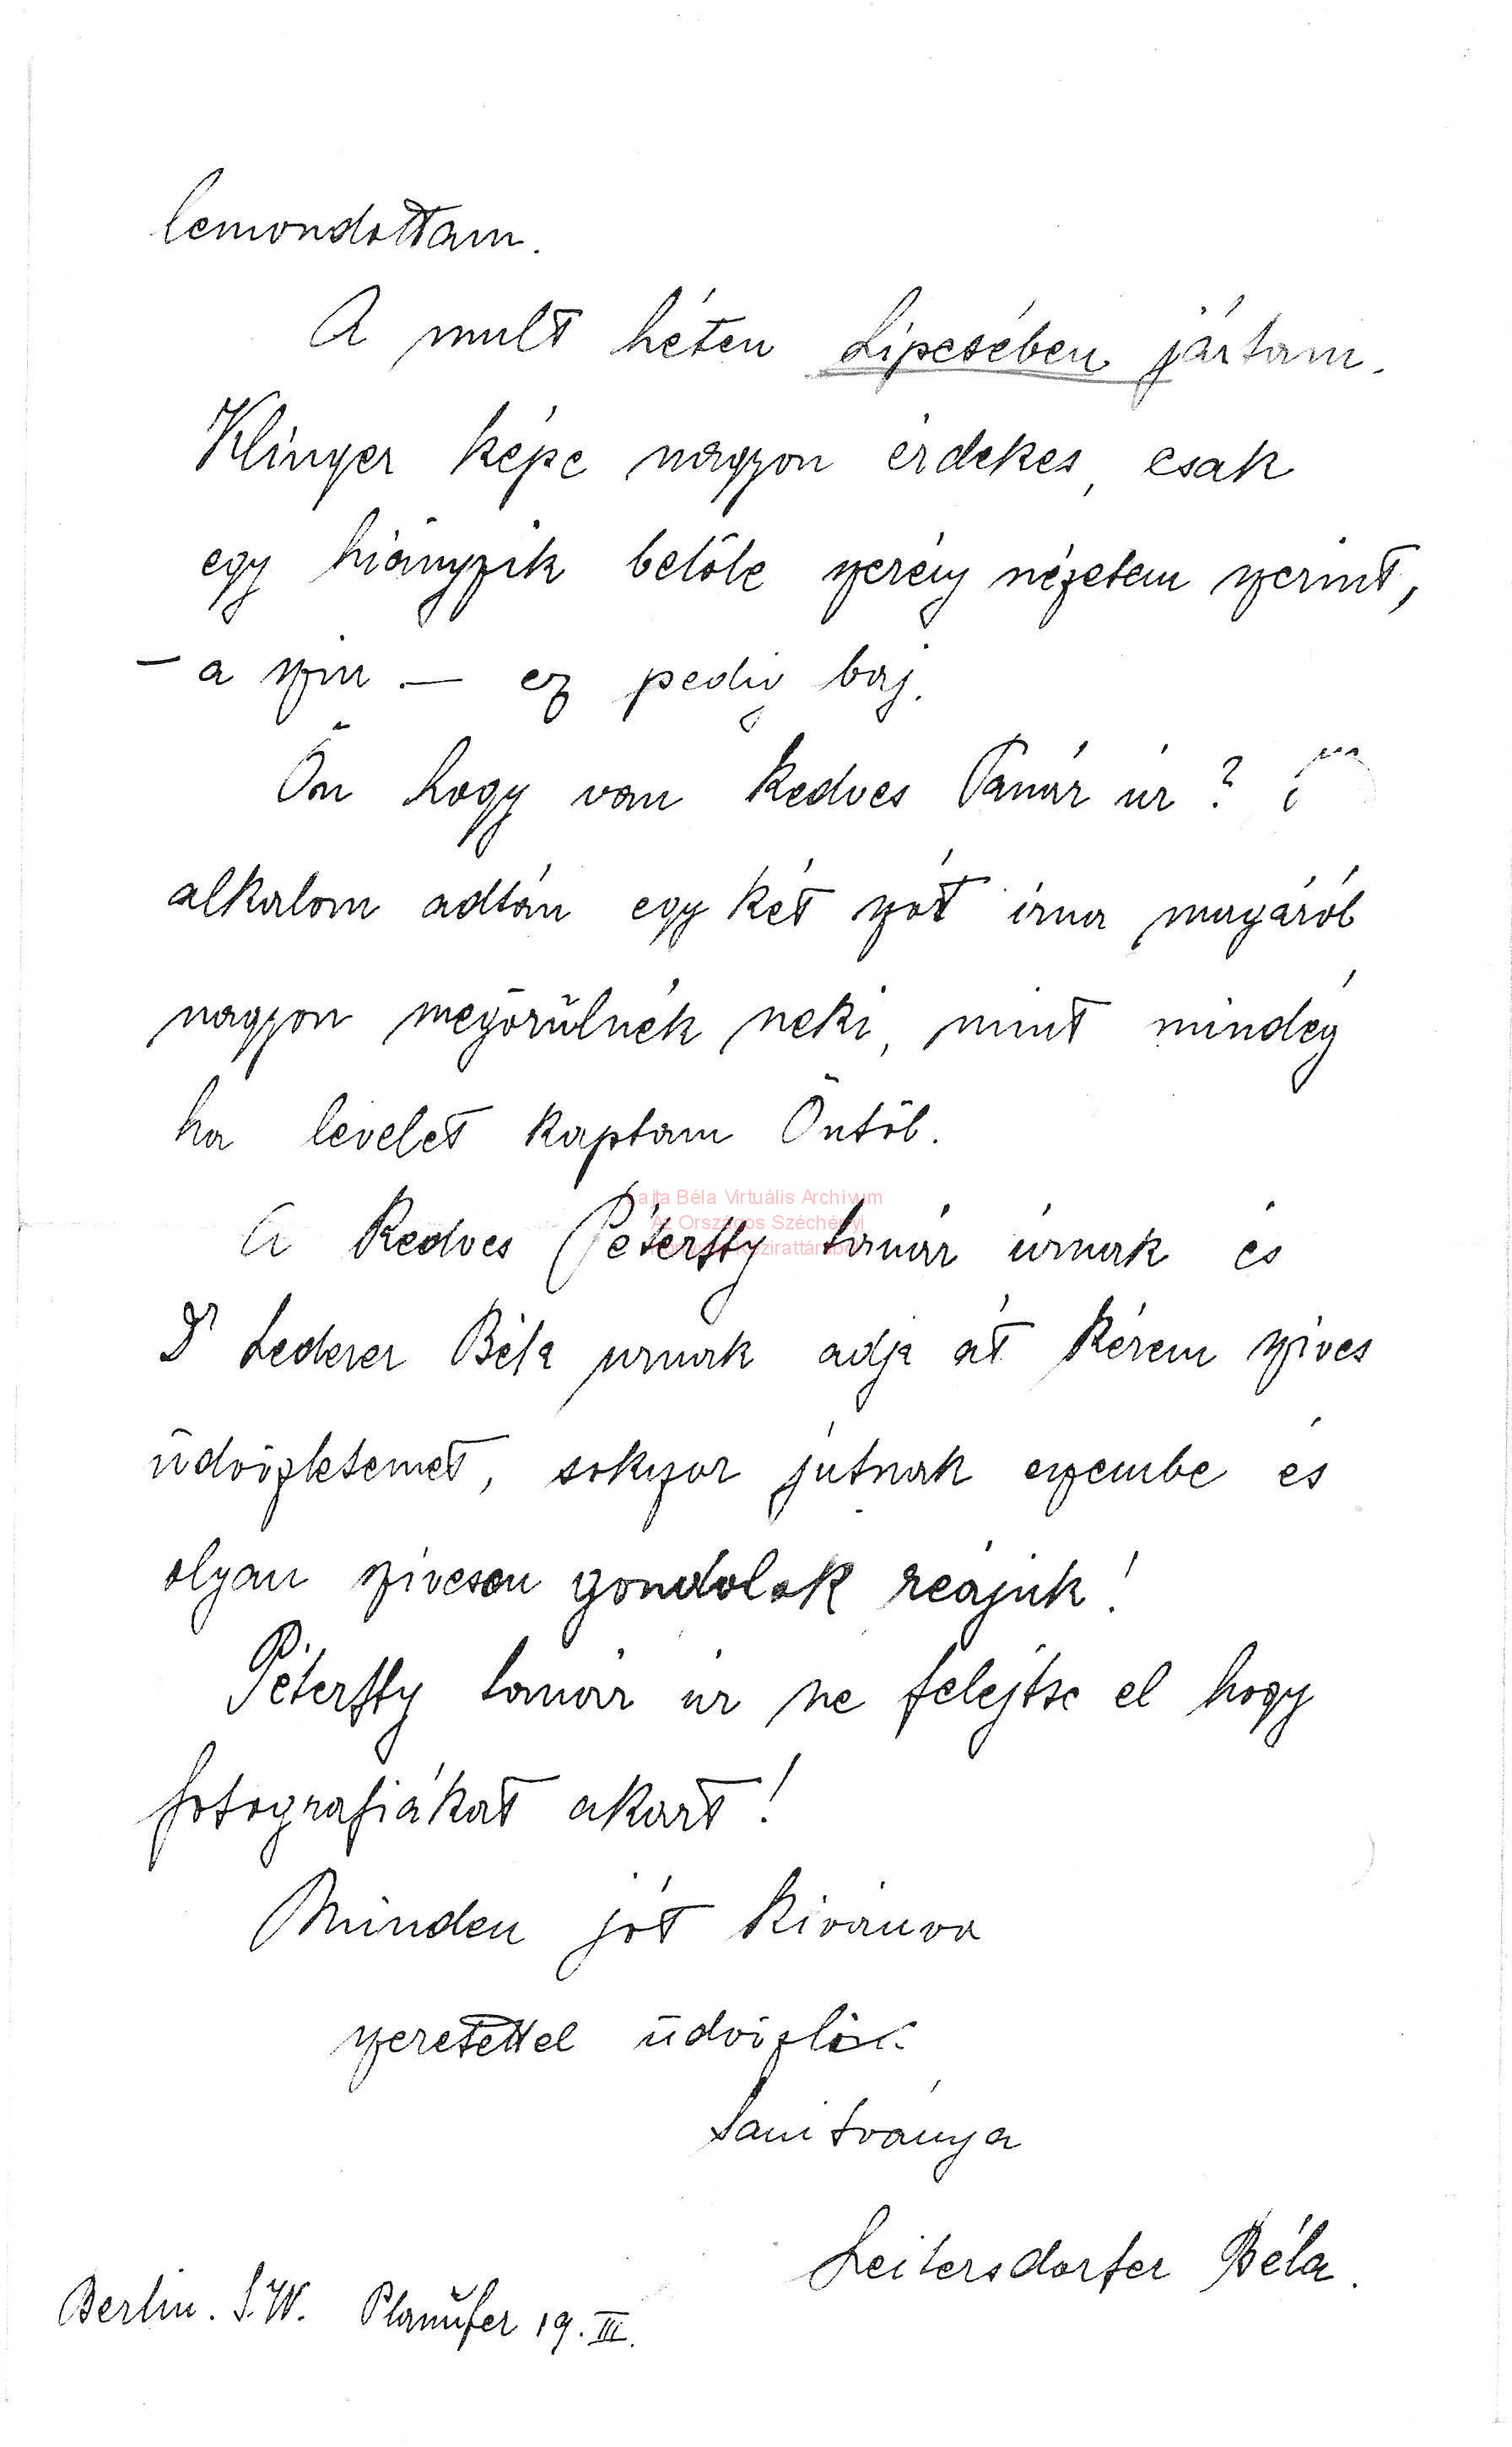 lemondottam.
A mult héten Lipcsében jártam.
Klinger képe nagyon érdekes, csak
egy hiányzik belőle szerény nézetem szerint,
– a szin. – ez pedig baj.
Ön hogy van kedves Tanár úr?
alkalom adtán egy két szót irna magáról
nagyon megörülnék neki, mint mindég
ha levelet kaptam Öntöl.
A kedves Péterffy tanár úrnak és
Dr Lederer Béla urnak adja át kérem szives
üdvözletemet, sokszor jutnak eszembe és
olyan szivesen gondolok reájuk!
Péterffy tanár úr ne felejtse el hogy
fotografiákat akart!
Minden jót kivánva
szeretettel üdvözlik
tanitványa
Leitersdorfer Béla.
Berlin. S.W. Planufer 19. III.
Lajta Béla Virtuális Archívum
Az Országos Széchényi
Könyvtár Kézirattárából